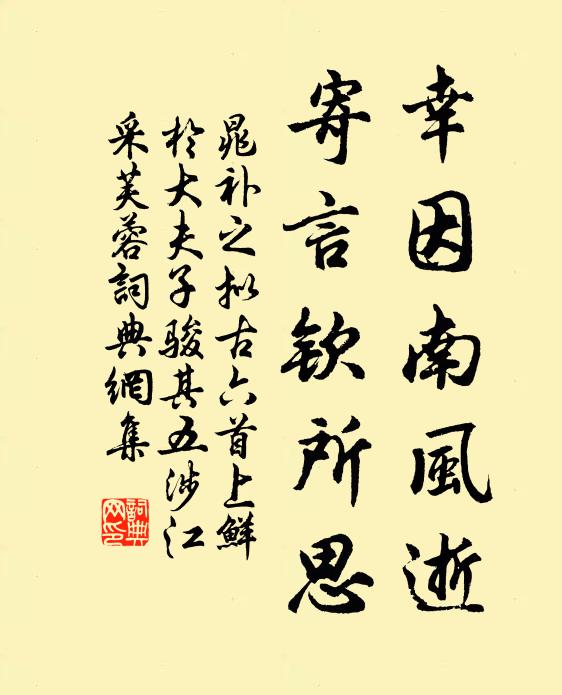 幸因南風逝
寄言欽所思
晁补之拟古六首上鮮
於大夫子駿其五涉江
采芙蓉詞典網集
詞典
网印